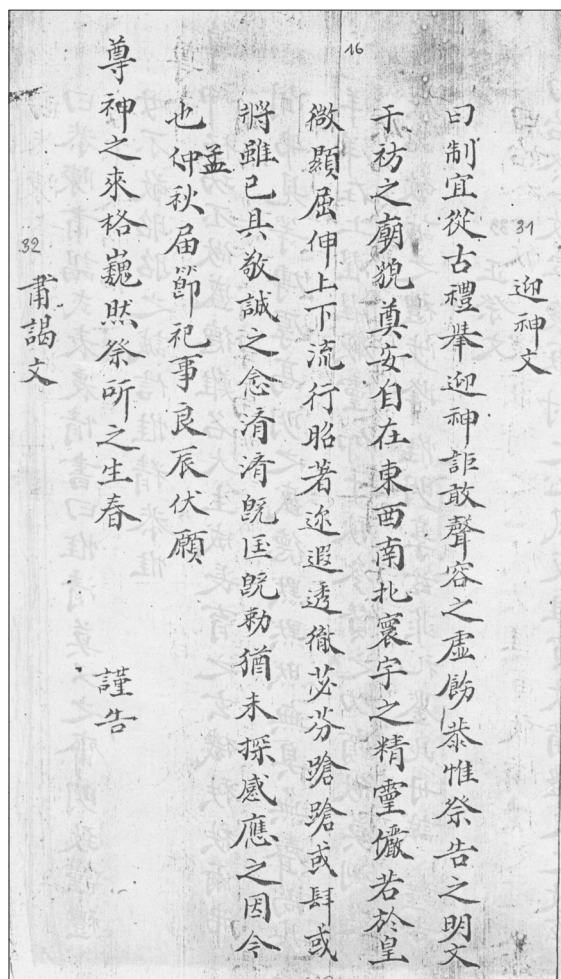 31 迎神文
曰制宜從古禮举迎神詎敢聲容之虛飭恭惟祭告之明文
于祊之廟貌奠安自在東西南北寰宇之精霊儼若於皇
16
微顯屈伸上下流行昭著迩遐透徹苾芬蹌蹌或肆或
將雖已具敬誠之念済済既匡既勅猶未探感應之因今
孟
也仲秋届節祀事良辰伏願
尊神之來格巍然祭所之生春
謹告
32 肅謁文